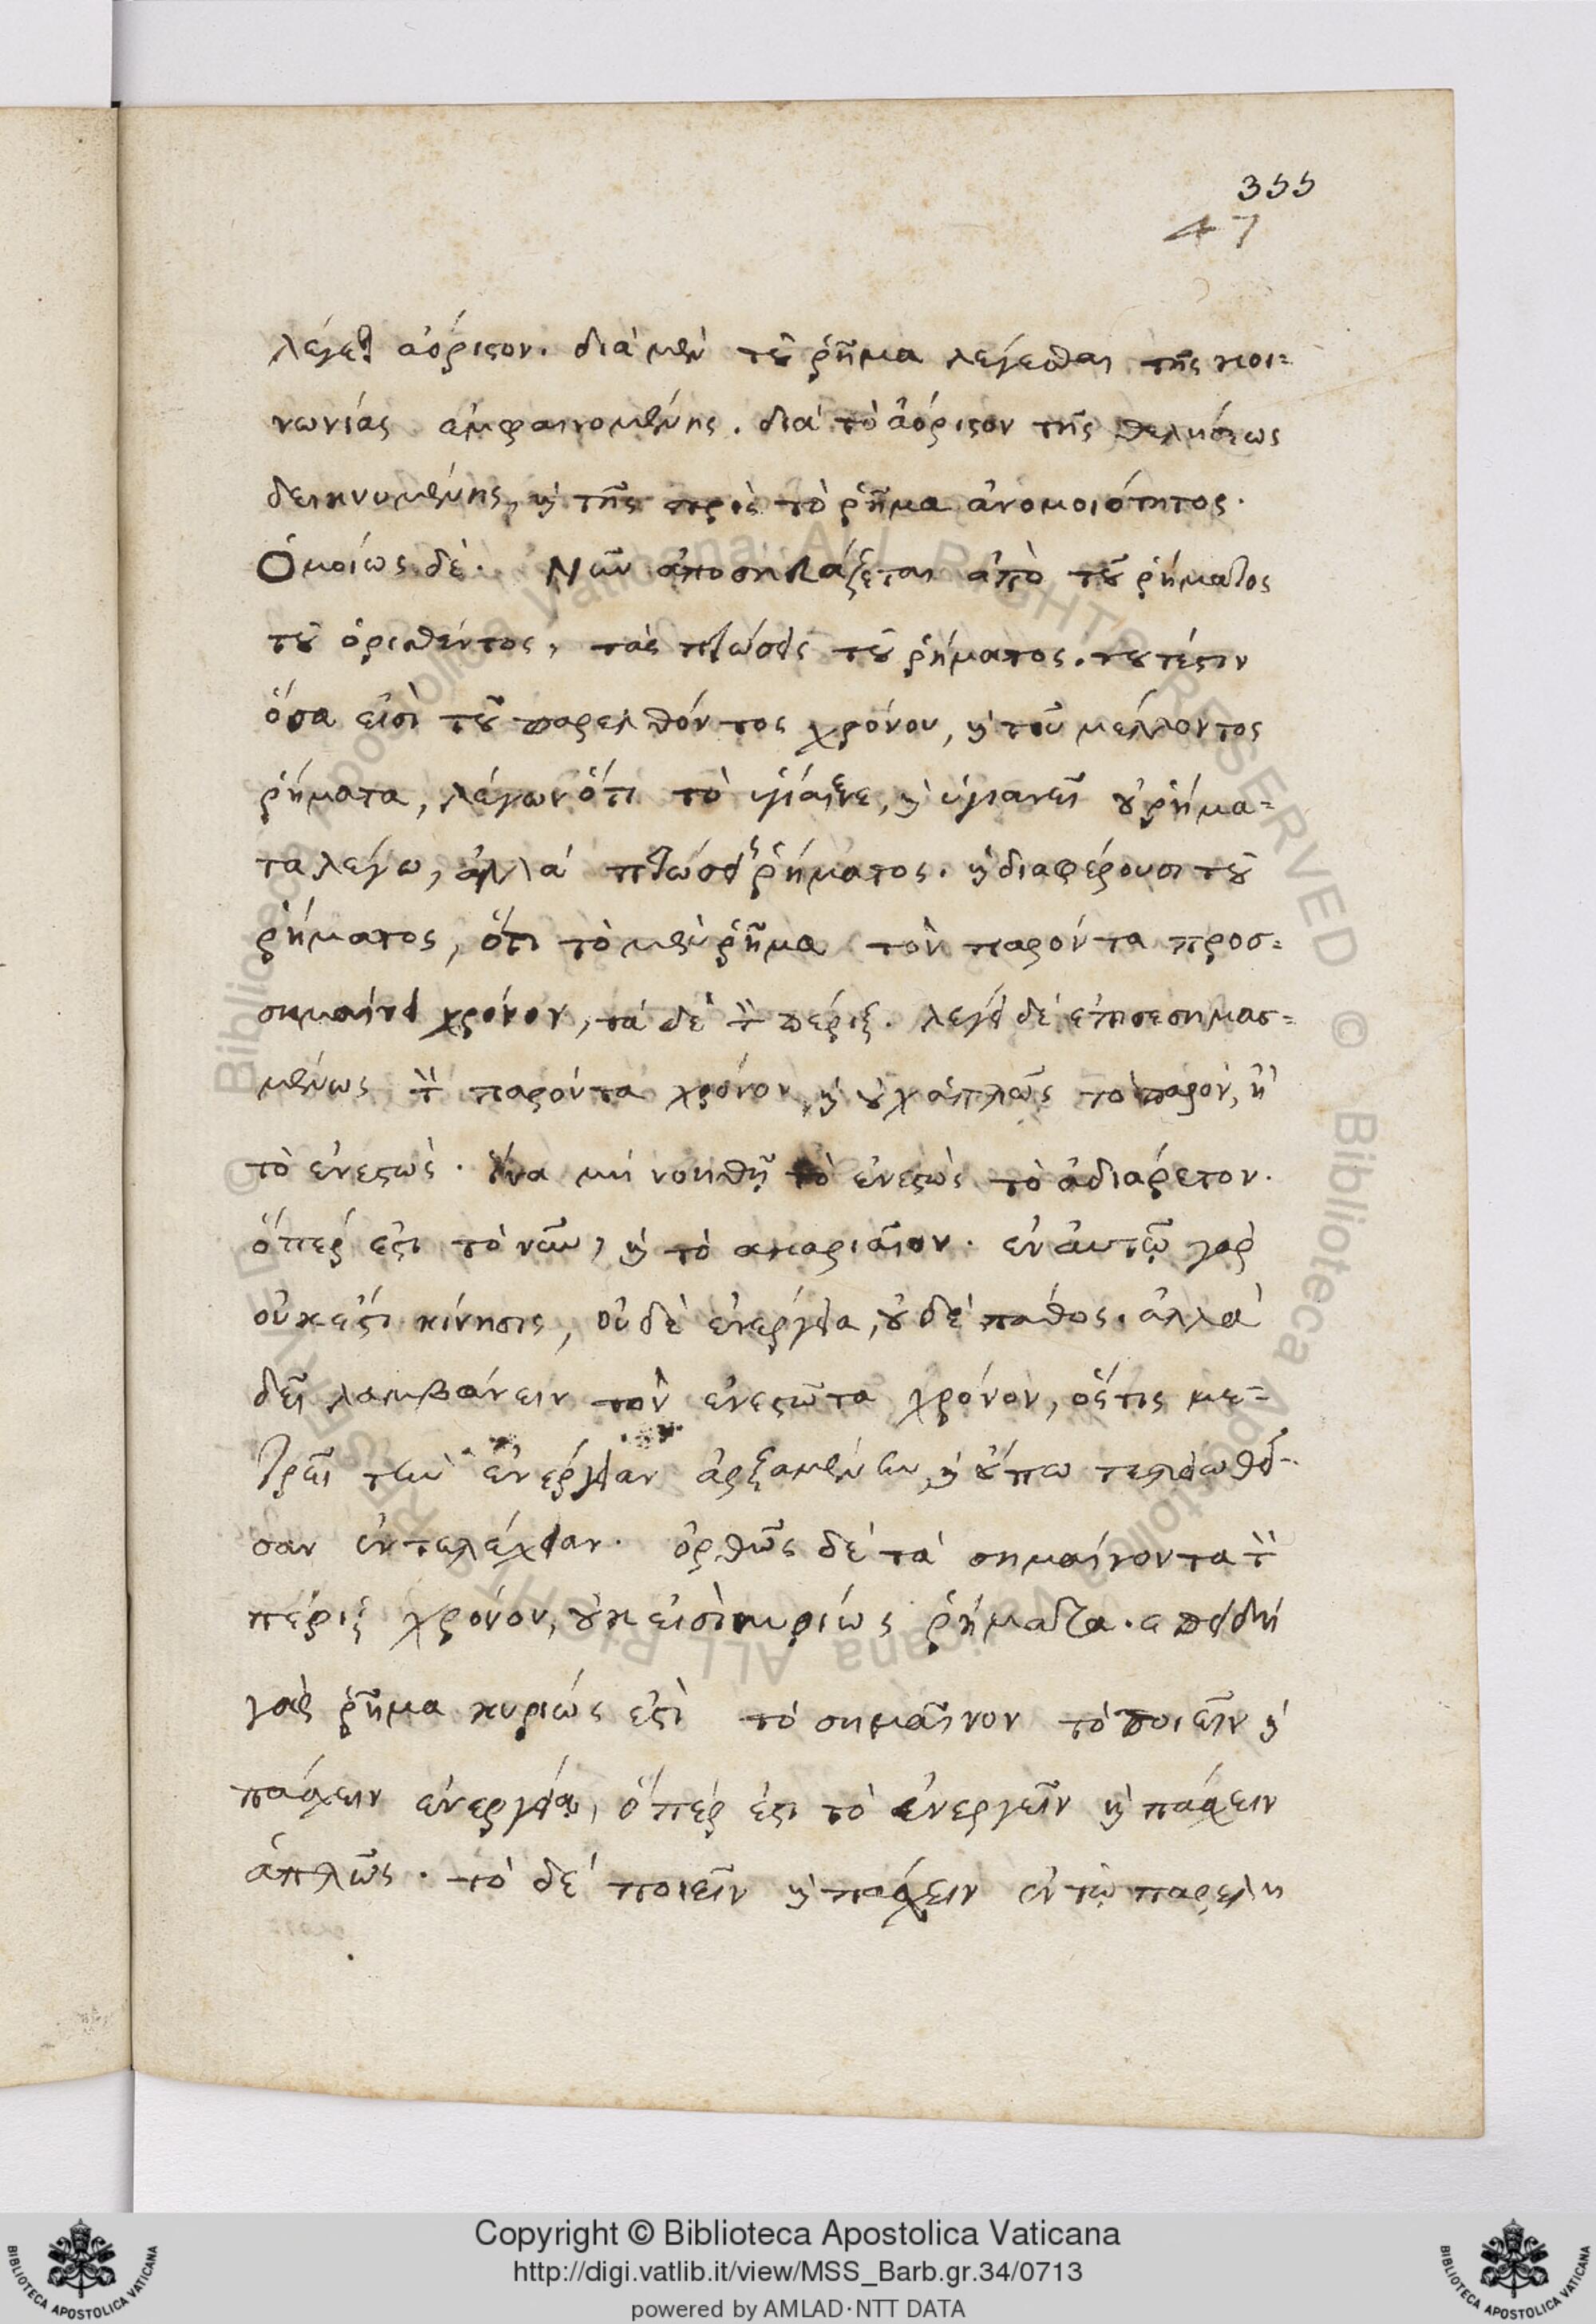 355
47
λέγεται αόριστον. διὰ μὲν τοῦ ῥῆμα λέγεσθαι τῆς κοι=
νωνίας ἐμφαινομένης. διὰ τὸ ἀόριστον τῆς
δεικνυμένης, καὶ τῆς πρὸς τὸ ῥῆμα ἀνομοιότητος.
Ὁμοίως δὲ. Νῦν ἀποσκευάζεται ἀπὸ τοῦ ῥήματος
τοῦ ὁρισθέντος, τὰς πτώσεις τοῦ ῥήματος. τουτέστιν
ὅσα εἰσὶ τοῦ παρελθόντος χρόνου, καὶ τοῦ μέλλοντος
ῥήματα, λέγων ὅτι τὸ ὑγίαινε, καὶ ὑγιανεῖ οὐ ῥήμα=
τα λέγω, ἀλλὰ πτώσεις ῥήματος. καὶ διαφέρουσι τοῦ
ῥήματος, ὅτι τὸ μὲν ῥῆμα τὸν παρόντα προσ=
σημαίνει χρόνον, τὰ δὲ τὸν πέριξ. λέγει δὲ ἐπισεσημασ=
μένως τὸν παρόντα χρόνον, καὶ οὐχ ἁπλῶς τὸ παρὸν, ἢ
τὸ ἐνεστὼς. ἵνα μὴ νοηθῇ τὸ ἐνεστὼς τὸ ἀδιαίρετον.
ὅπερ ἐστι τὸ νῦν, καὶ τὸ ἀκαριαῖον. ἐν αὐτῷ γὰρ
οὐκ ἔστι κίνησις, οὐδὲ ἐνέργεια, οὐδὲ πάθος. ἀλλὰ
δεῖ λαμβάνειν τὸν ἐνεστῶτα χρόνον, ὅστις με=
τρεῖ τὴν ἐνέργειαν ἀρξαμένην, καὶ οὔπω τελειωθεῖ=
σαν ἐντελέχειαν. ὀρθῶς δὲ τὰ σημαίνοντα τὸν
πέριξ χρόνον, οὐκ εἰσὶ κυρίως ῥήματα. ἐπειδὴ
γὰρ ῥῆμα κυρίως ἐστὶ τὸ σημαῖνον τὸ ποιεῖν καὶ
πάσχειν ἐνεργείᾳ, ὅπερ ἐστι τὸ ἐνεργεῖν καὶ πάσχειν
ἁπλῶς. τὸ δὲ ποιεῖν καὶ πάσχειν ἐν τῷ παρελη
Copyright © Biblioteca Apostolica Vaticana
http://digi.vatlib.it/view/MSS_Barb.gr.34/0713
powered by AMLAD·NTT DATA
BIBLIOTECA APOSTOLICA VATICANA
BIBLIOTECA APOSTOLICA VATICANA
© Biblioteca Apostolica Vaticana ALL RIGHTS RESERVED